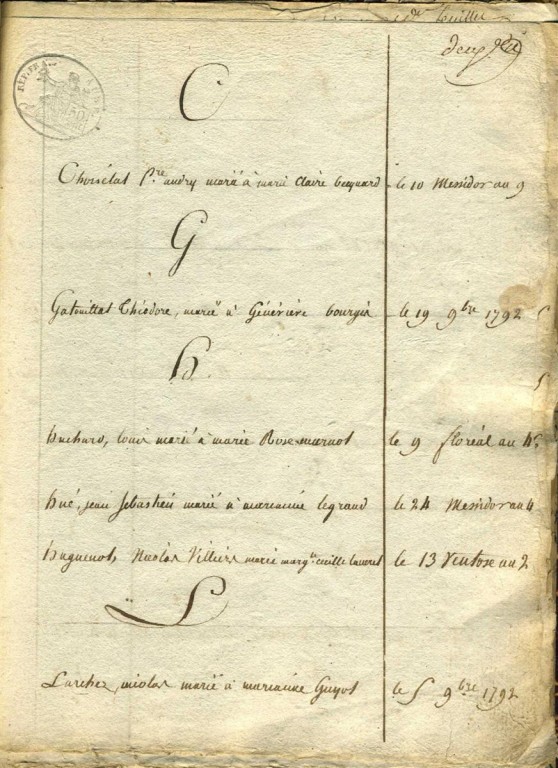 feuillet
deux
RÉP. FRA
C
Choiselat P.re andry marié à marie Claire becquard le 10 Messidor an 9
G
Gatouillat Théodore, marié à Généviève bourgis le 19 9bre 1792
h
huchard, louis marié à marie Rose le 9 floréal an 4e
hué, jean Sebastien marié à marianne legrand le 24 Messidor an 4
huguenot, Nicolas Villiers marié marg.te le 13 Ventose an 2
L
Larchez, nicolas marié à marianne Guyot le 5 9bre 1792